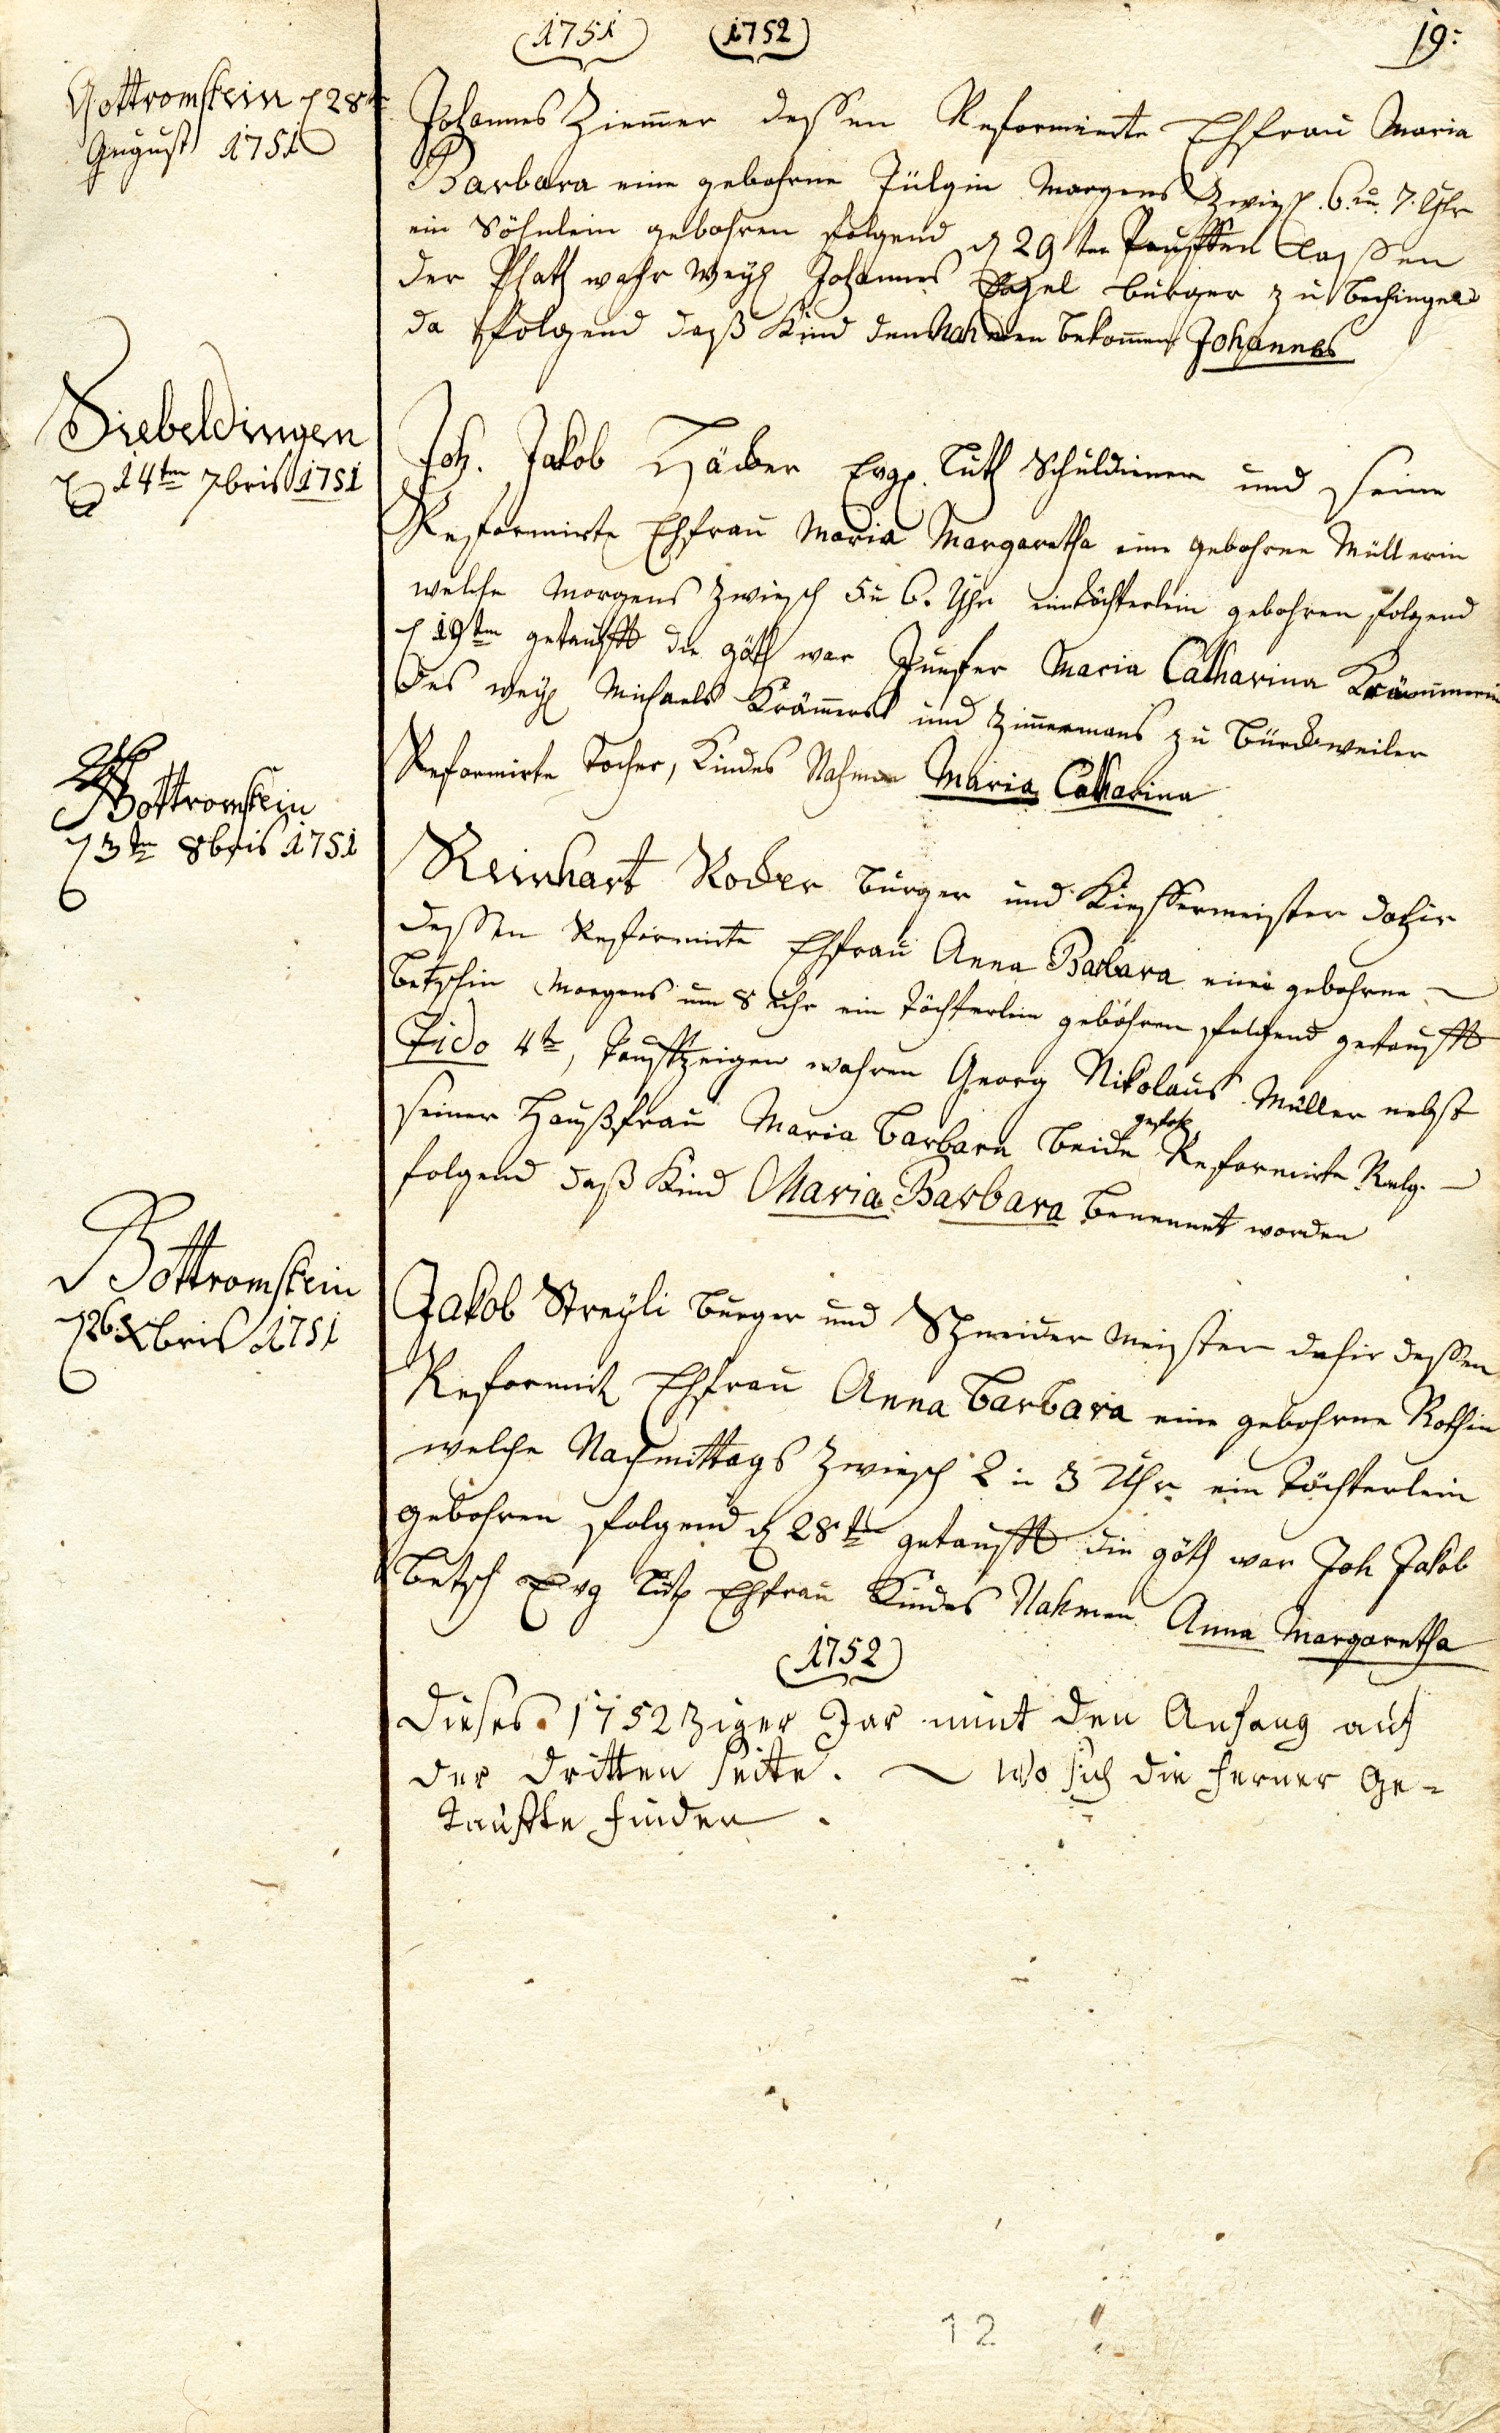 1751 1752
19:
Gottromstein d 28t
August 1751
Johannes Zimmer dessen Reformierte Ehfrau Maria
Barbara eine gebohrne Jülgin Morgens Zwisch. 6. u. 7. Uhr
ein Söhnlein gebohren folgend d 29 ten Tauffen lassen
der Phatt wahr weyl Johannes Vogel burger zu bechingen
da folgend daß Kind den Nahmen bekommen Johannes
Siebeldingen
d 14tn 7bris 1751
Joh. Jakob Häcker Evg. Luth Schuldiener und seine
Reformirte Ehfrau Maria Margaretha eine gebohrne Müllerin
welche Morgens Zwisch 5 u 6. Uhr ein Töchterlein gebohren folgend
d 19tn getaufft die göth war Junfer Maria Catharina Krämmerin
des weyl Michaels Krämmers und Zimmermans zu Bürckweiler
Reformirte Tochter, Kindes Nahmen Maria Catharina
Gottromstein
d 3tn 8bris 1751
Reinhart Rocker burger und Kieffermeister dahir
dessen Reformirte Ehfrau Anna Barbara eine gebohrne
Betschin Morgens um 8 Uhr ein Töchterlein gebohren folgend getaufft
Fido 4tn, Tauffzeigen wahren Georg Nikolaus Müller nebst
seiner Haußfrau Maria Barbara beide Reformirte Relg.
folgend daß Kind Maria Barbara benennet worden
Gottromstein
d 26 Xbris 1751
Jakob Streyli burger und Schneider Meister dahir dessen
Reformirt Ehfrau Anna Barbara eine gebohrne Rothin
welche Nachmittags Zwisch 2 u 3 Uhr ein Töchterlein
gebohren folgend d 28tn getaufft die göth war Joh Jakob
Betsch Evg Luth Ehfrau Kindes Nahmen Anna Margaretha
1752
Dieses 1752ziger Jar nimt den Anfang auf
der dritten seite. wo sich die ferner Ge-
tauffte finden.
12